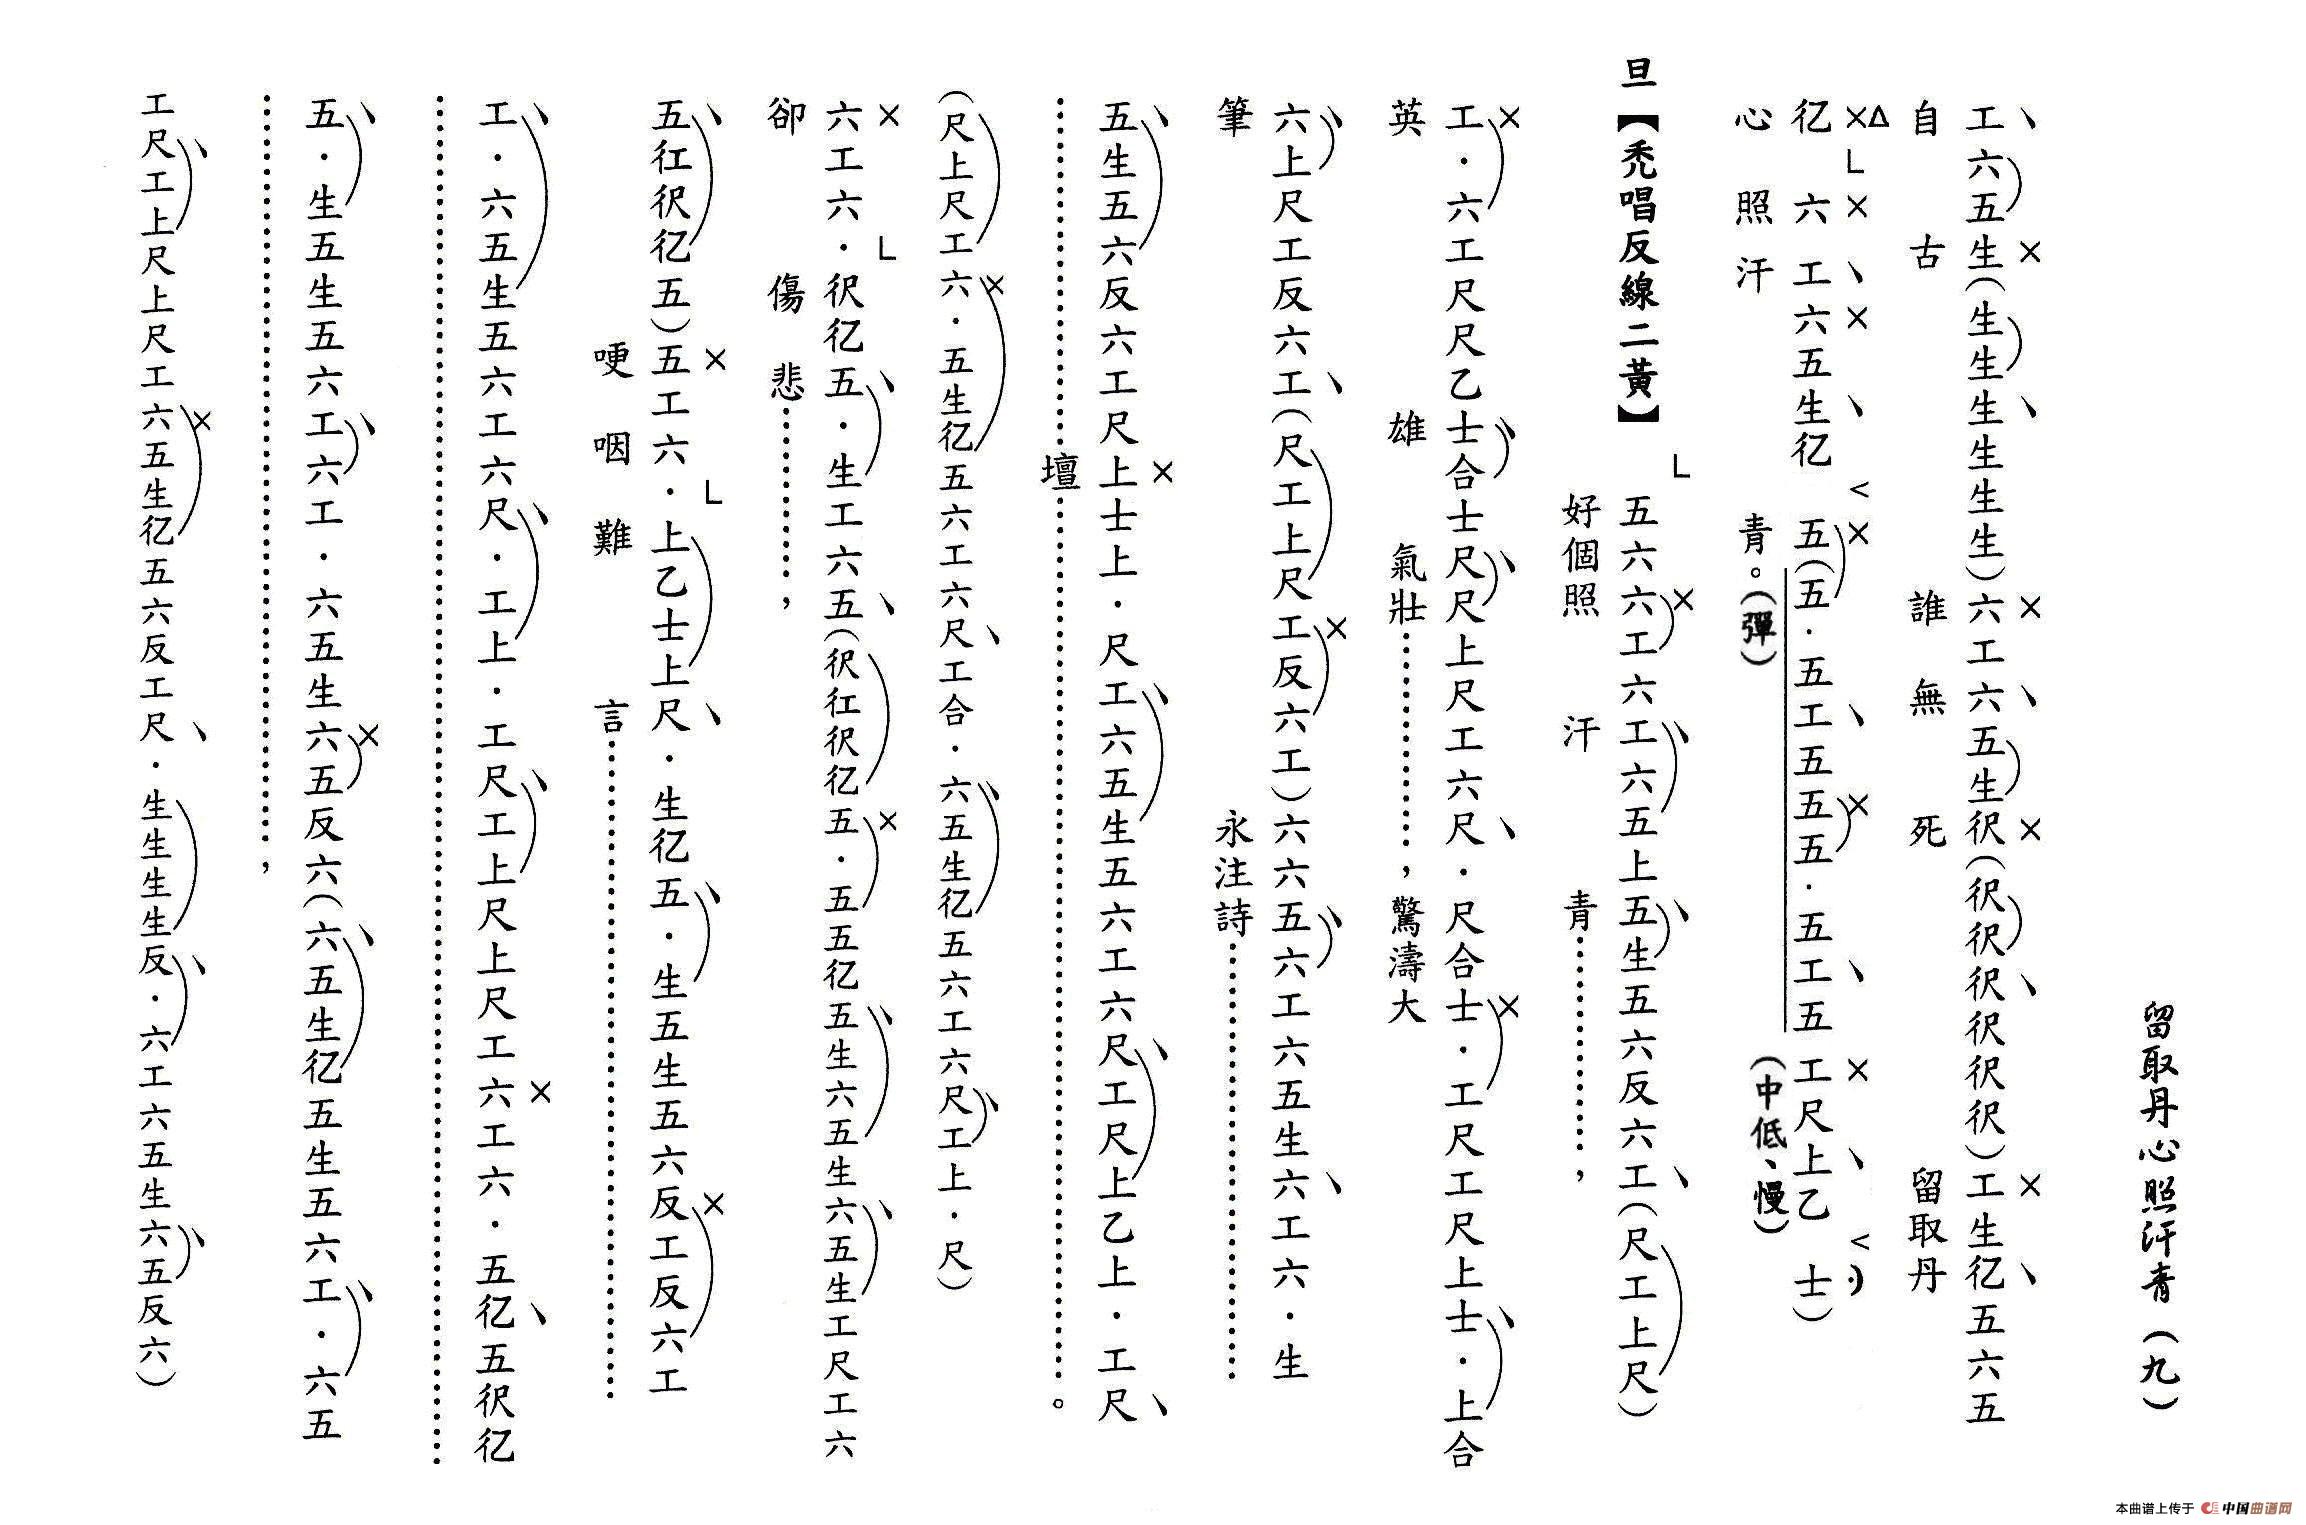 留取丹心照汗青（九）
工六五生（生生生生生生）六工六五生伬（伬伬伬伬伬伬）工生亿五六五
自古誰無死留取丹
亿六工六五生亿五（五．五工五五五．五工五工尺上乙士）
心照汗青。（彈）（中低、慢）
旦【禿唱反線二黃】五六六工六工六五上五生五六反六工（尺工上尺）
好個照汗青…………，
工．六工尺尺乙士合士尺尺上尺工六尺．尺合士．工尺工尺上士．上合
英雄氣壯…………，驚濤大
六上尺工反六工（尺工上尺工反六工）六六五六工六五生六工六．生
筆永注詩…………
五生五六反六工尺上士上．尺工六五生五六工六尺工尺上乙上．工尺
…………壇…………。
（尺上尺工六．五生亿五六工六尺工合．六五生亿五六工六尺工上．尺）
六工六．伬亿五．生工六五（伬仜伬亿五．五五亿五生六五生六五生工尺工六
卻傷悲…………，
五仜伬亿五）五工六．上乙士上尺．生亿五．生五生五六反工反六工
哽咽難言…………
工．六五生五六工六尺．工上．工尺工上尺上尺工六工六．五亿五伬亿
…………
五．生五生五六工六工．六五生六五反六（六五生亿五生五六工．六五
…………，
工尺工上尺上尺工六五生亿五六反工尺．生生生生反．六工六五生六五反六）
本曲谱上传于 中国曲谱网